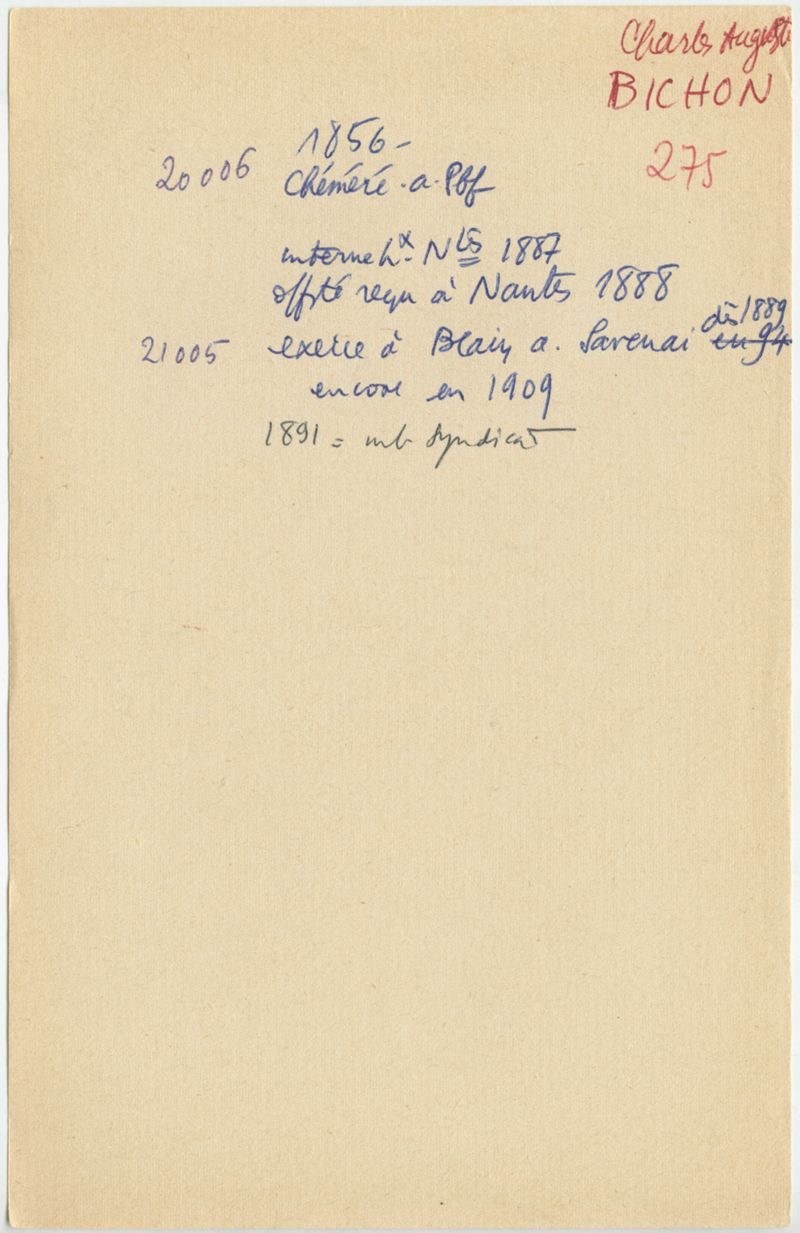 Charles Auguste
BICHON
275
1856-
20006 Chéméré . a. Pbf
interne hx. Ntes 1887
offté reçu à Nantes 1888
dès 1889
21005 exerce à Blain a. Savenai en 94
encore en 1909
1891 = mb Syndicat